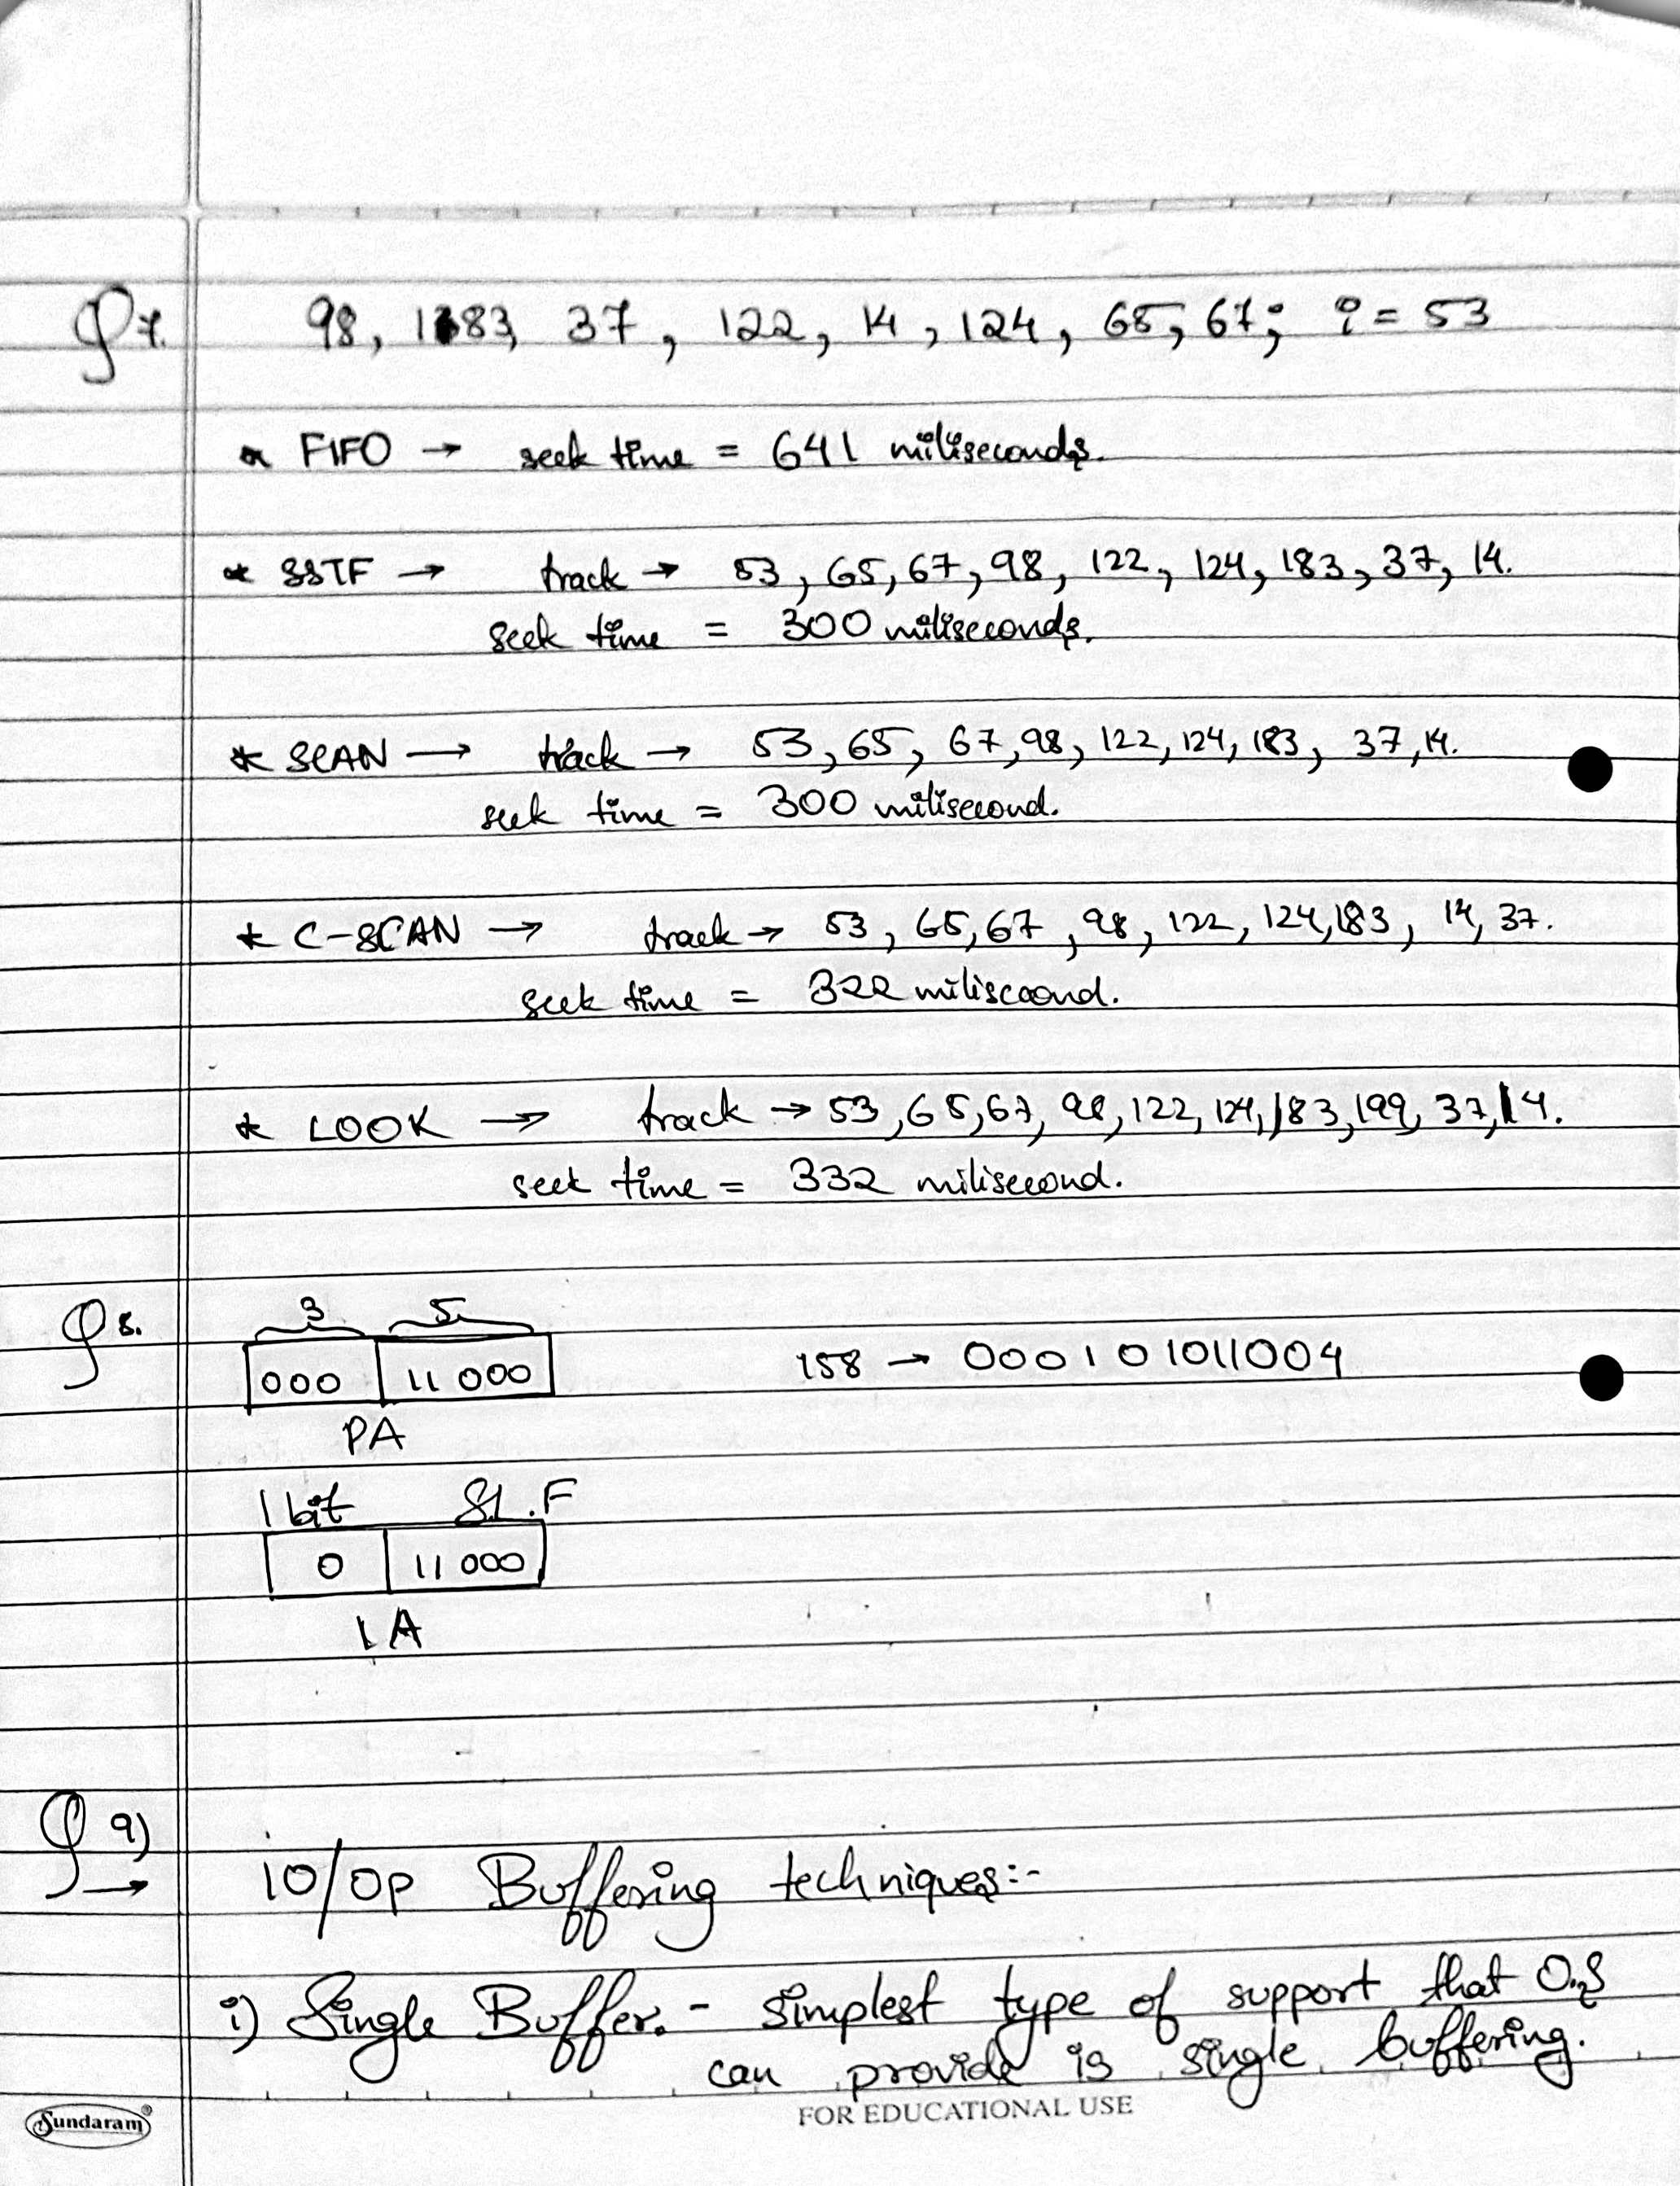 Q7. 98, 183, 37, 122, 14, 124, 65, 67; i = 53
* FIFO → seek time = 641 miliseconds.
* SSTF → track → 53, 65, 67, 98, 122, 124, 183, 37, 14.
seek time = 300 miliseconds.
* SCAN → track → 53, 65, 67, 98, 122, 124, 183, 37, 14.
seek time = 300 milisecond.
* C-SCAN → track → 53, 65, 67, 98, 122, 124, 183, 14, 37.
seek time = 322 miliscoond.
* LOOK → track → 53, 65, 67, 98, 122, 124, 183, 199, 37, 14.
seek time = 332 milisecond.
3 5
Q8. 000 11 000 158 → 000101011004
PA
1 bit
0 11 000
LA
Q9)
→ IO/Op Buffering techniques:-
i) Single Buffer. - simplest type of support that O.S
can provide is single buffering.
Sundaram® FOR EDUCATIONAL USE